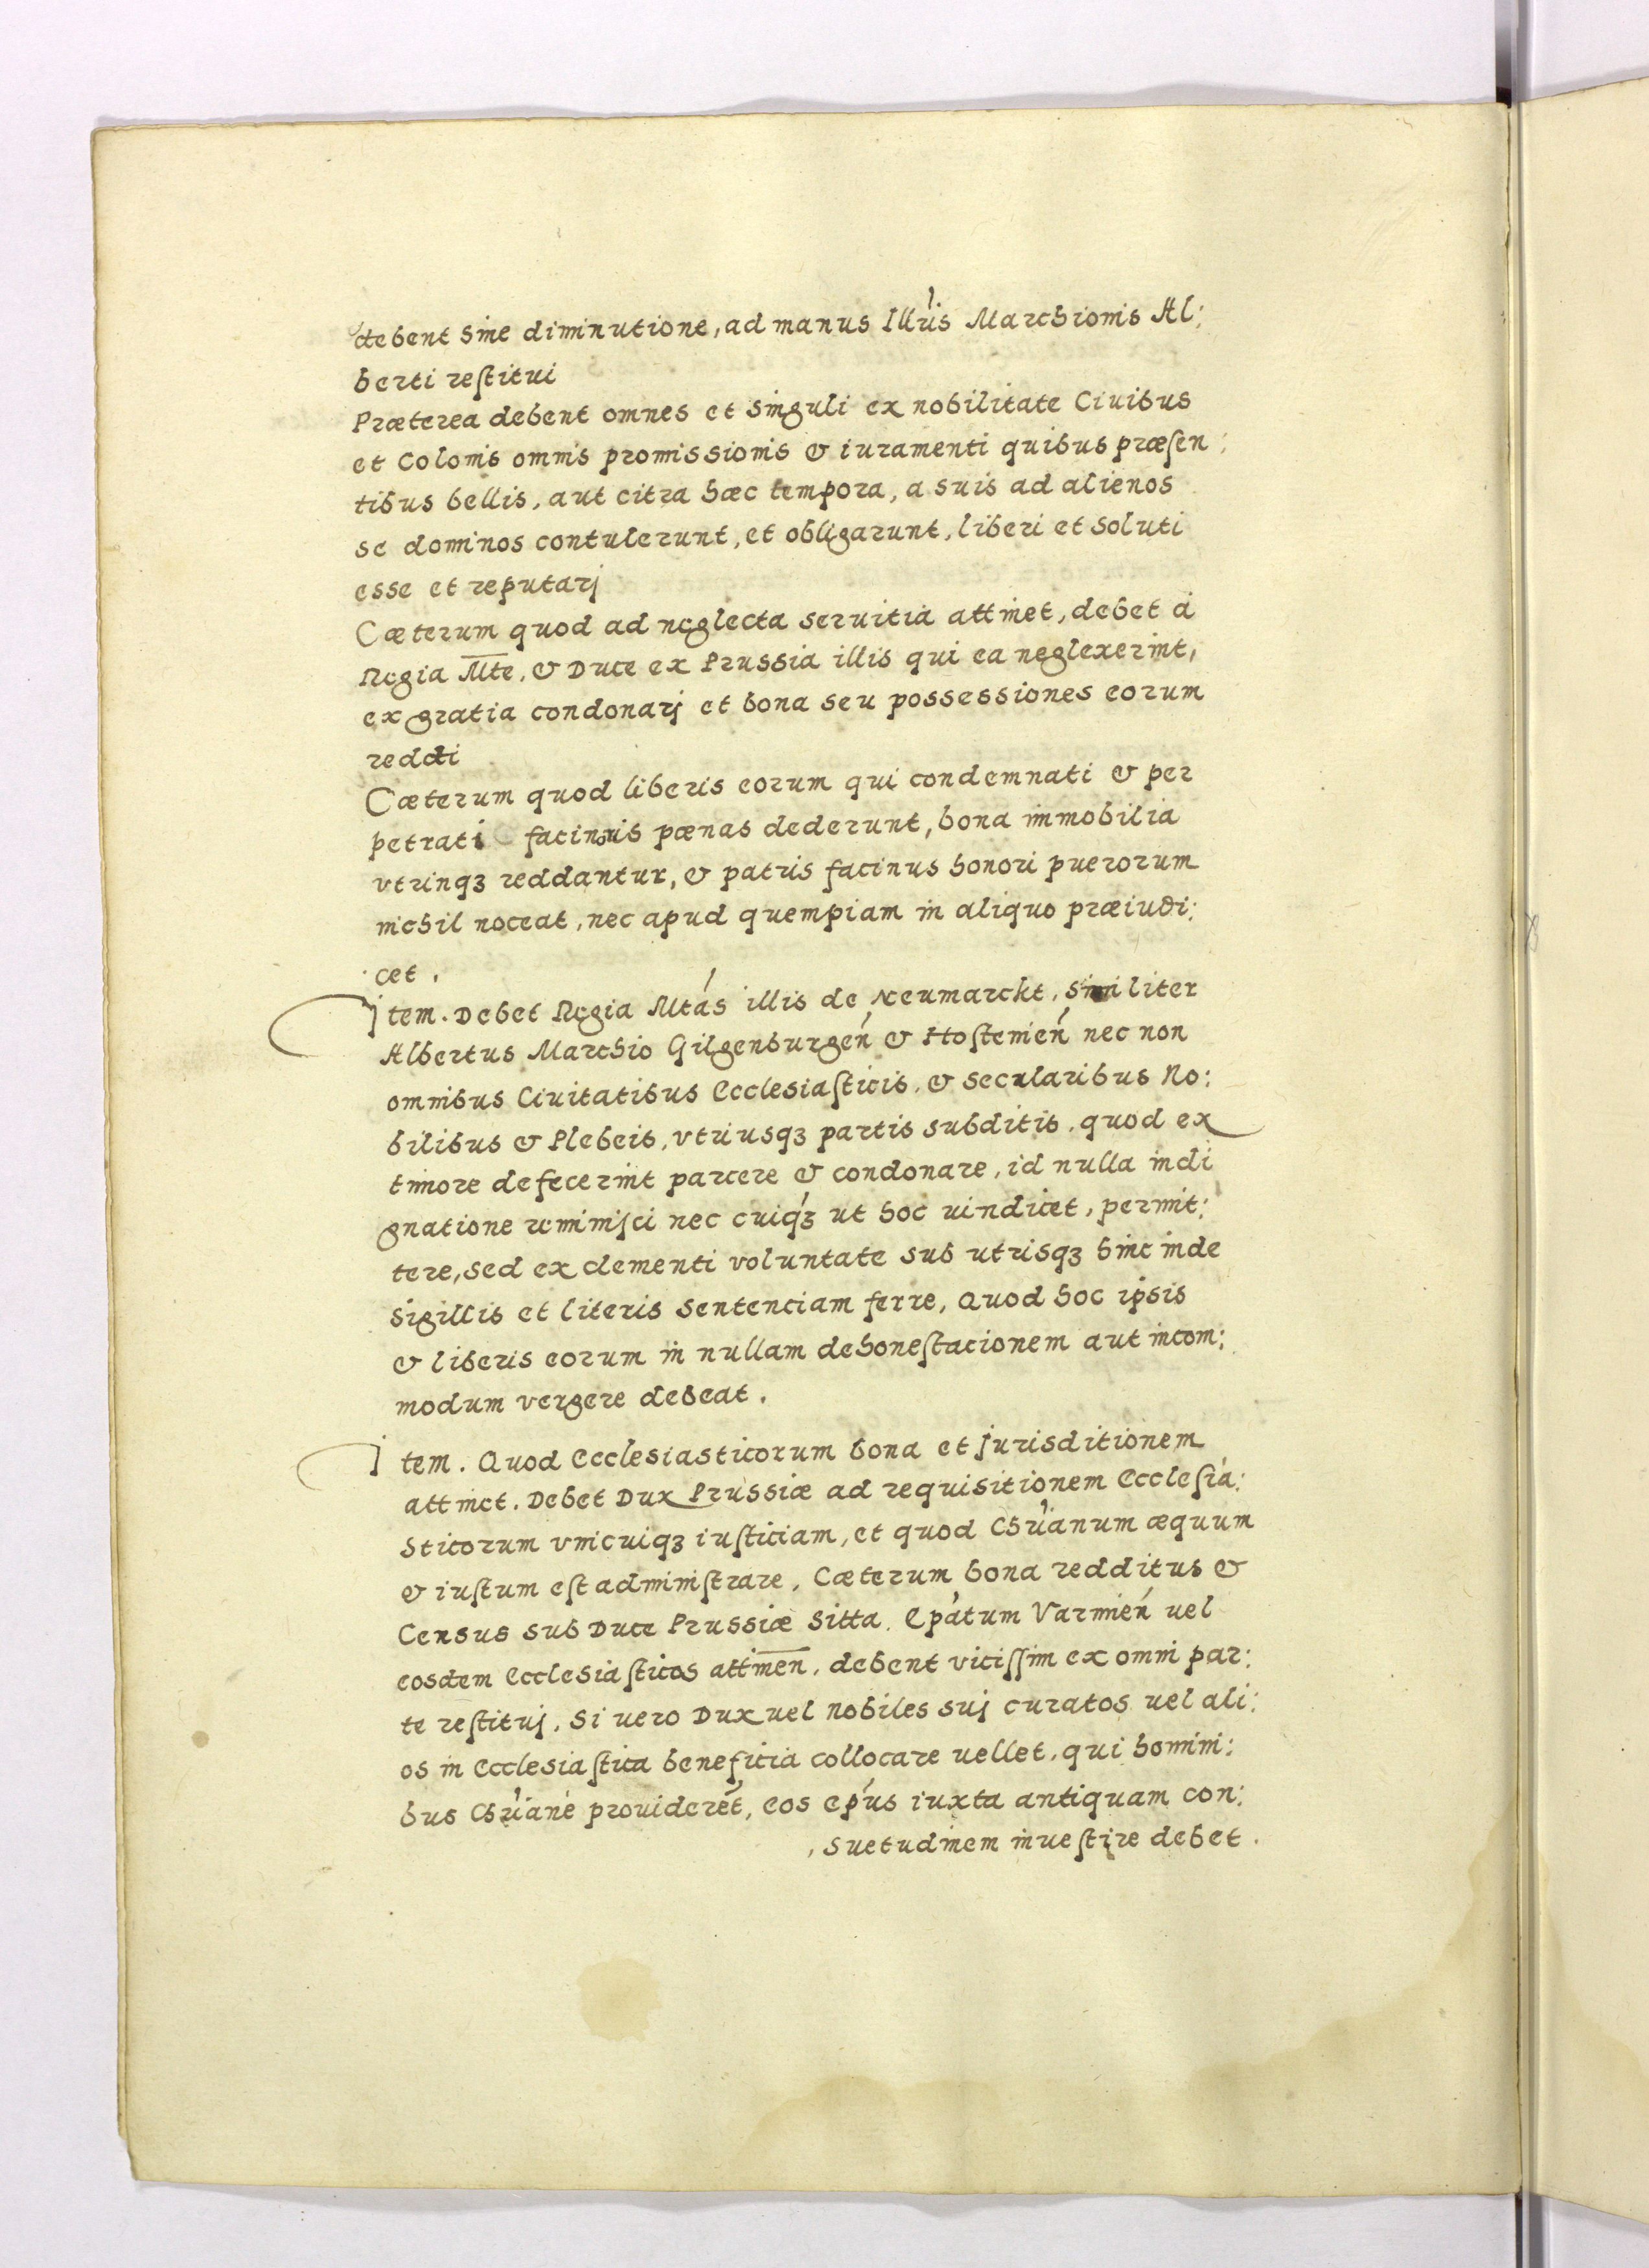 debent sine diminutione, ad manus Illu's Marchionis Al:
berti restitui
Præterea debent omnes et singuli ex nobilitate Ciuibus
et Colonis omnis promissionis & iuramenti quibus præsen:
tibus bellis, aut citra hæc tempora, a suis ad alienos
se dominos contulerunt, et obligarunt, liberi et soluti
esse et reputarj
Cæterum quod ad neglecta seruitia attinet, debet á
Regia Mte, & Duce ex Prussia illis qui ea neglexerint,
ex gratia condonarj et bona seu possessiones eorum
reddi
Cæterum quod liberis eorum qui condemnati & per
petrati facinoris pœnas dederunt, bona immobilia
vtrinqꝫ reddantur, & patris facinus honori puerorum
nichil noceat, nec apud quempiam in aliquo præiudi:
cet.
Item. Debet Regia Mtás illis de Neumarckt, similiter
Albertus Marchio Gilgenburgeń & Hosteinień nec non
omnibus Ciuitatibus Ecclesiasticis, & secularibus No:
bilibus & Plebeis, vtriusqꝫ partis subditis, quod ex
timore defecerint parcere & condonare, id nulla indi
gnatione reminisci nec cuiqꝫ ut hoc uindicet, permit:
tere, sed ex clementi voluntate sub utrisqꝫ hinc inde
sigillis et literis sentenciam ferre, Quod hoc ipsis
& liberis eorum in nullam dehonestacionem aut incom:
modum vergere debeat.
Item. Quod Ecclesiasticorum bona et Jurisditionem
attinet. Debet Dux Prussiæ ad requisitionem Ecclesia:
sticorum vnicuiqꝫ iusticiam, et quod Chr'ianum æquum
& iustum est administrare, Cæterum bona redditus &
Census sub Duce Prussiæ sitta. Epátum Varmień uel
eosdem Ecclesiasticos attinen̄, debent vicissim ex omni par:
te restituj, Si uero Dux uel Nobiles suj curatos uel ali:
os in Ecclesiastica beneficia collocare uellet, qui homini:
bus Chr'iane prouideret, eos epús iuxta antiquam con:
suetudinem inuestire debet.